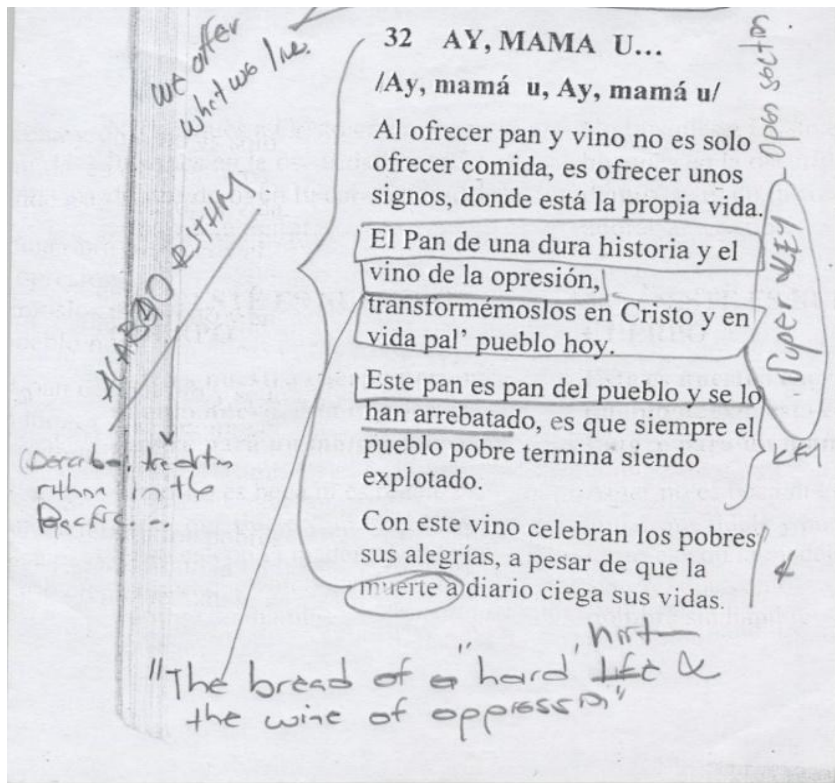 we offer
what we live.
32 AY, MAMA U...
/Ay, mamá u, Ay, mamá u/
Al ofrecer pan y vino no es solo
ofrecer comida, es ofrecer unos
signos, donde está la propia vida.
El Pan de una dura historia y el
vino de la opresión,
transformémoslos en Cristo y en
vida pal' pueblo hoy.
Este pan es pan del pueblo y se lo
han arrebatado, es que siempre el
pueblo pobre termina siendo
explotado.
Con este vino celebran los pobres
sus alegrías, a pesar de que la
muerte a diario ciega sus vidas.
Open section
Super KEY
KEY
ALABAO RITHM
rithm in the
Pacific
"The bread of a "hard" life &
the wine of oppression"